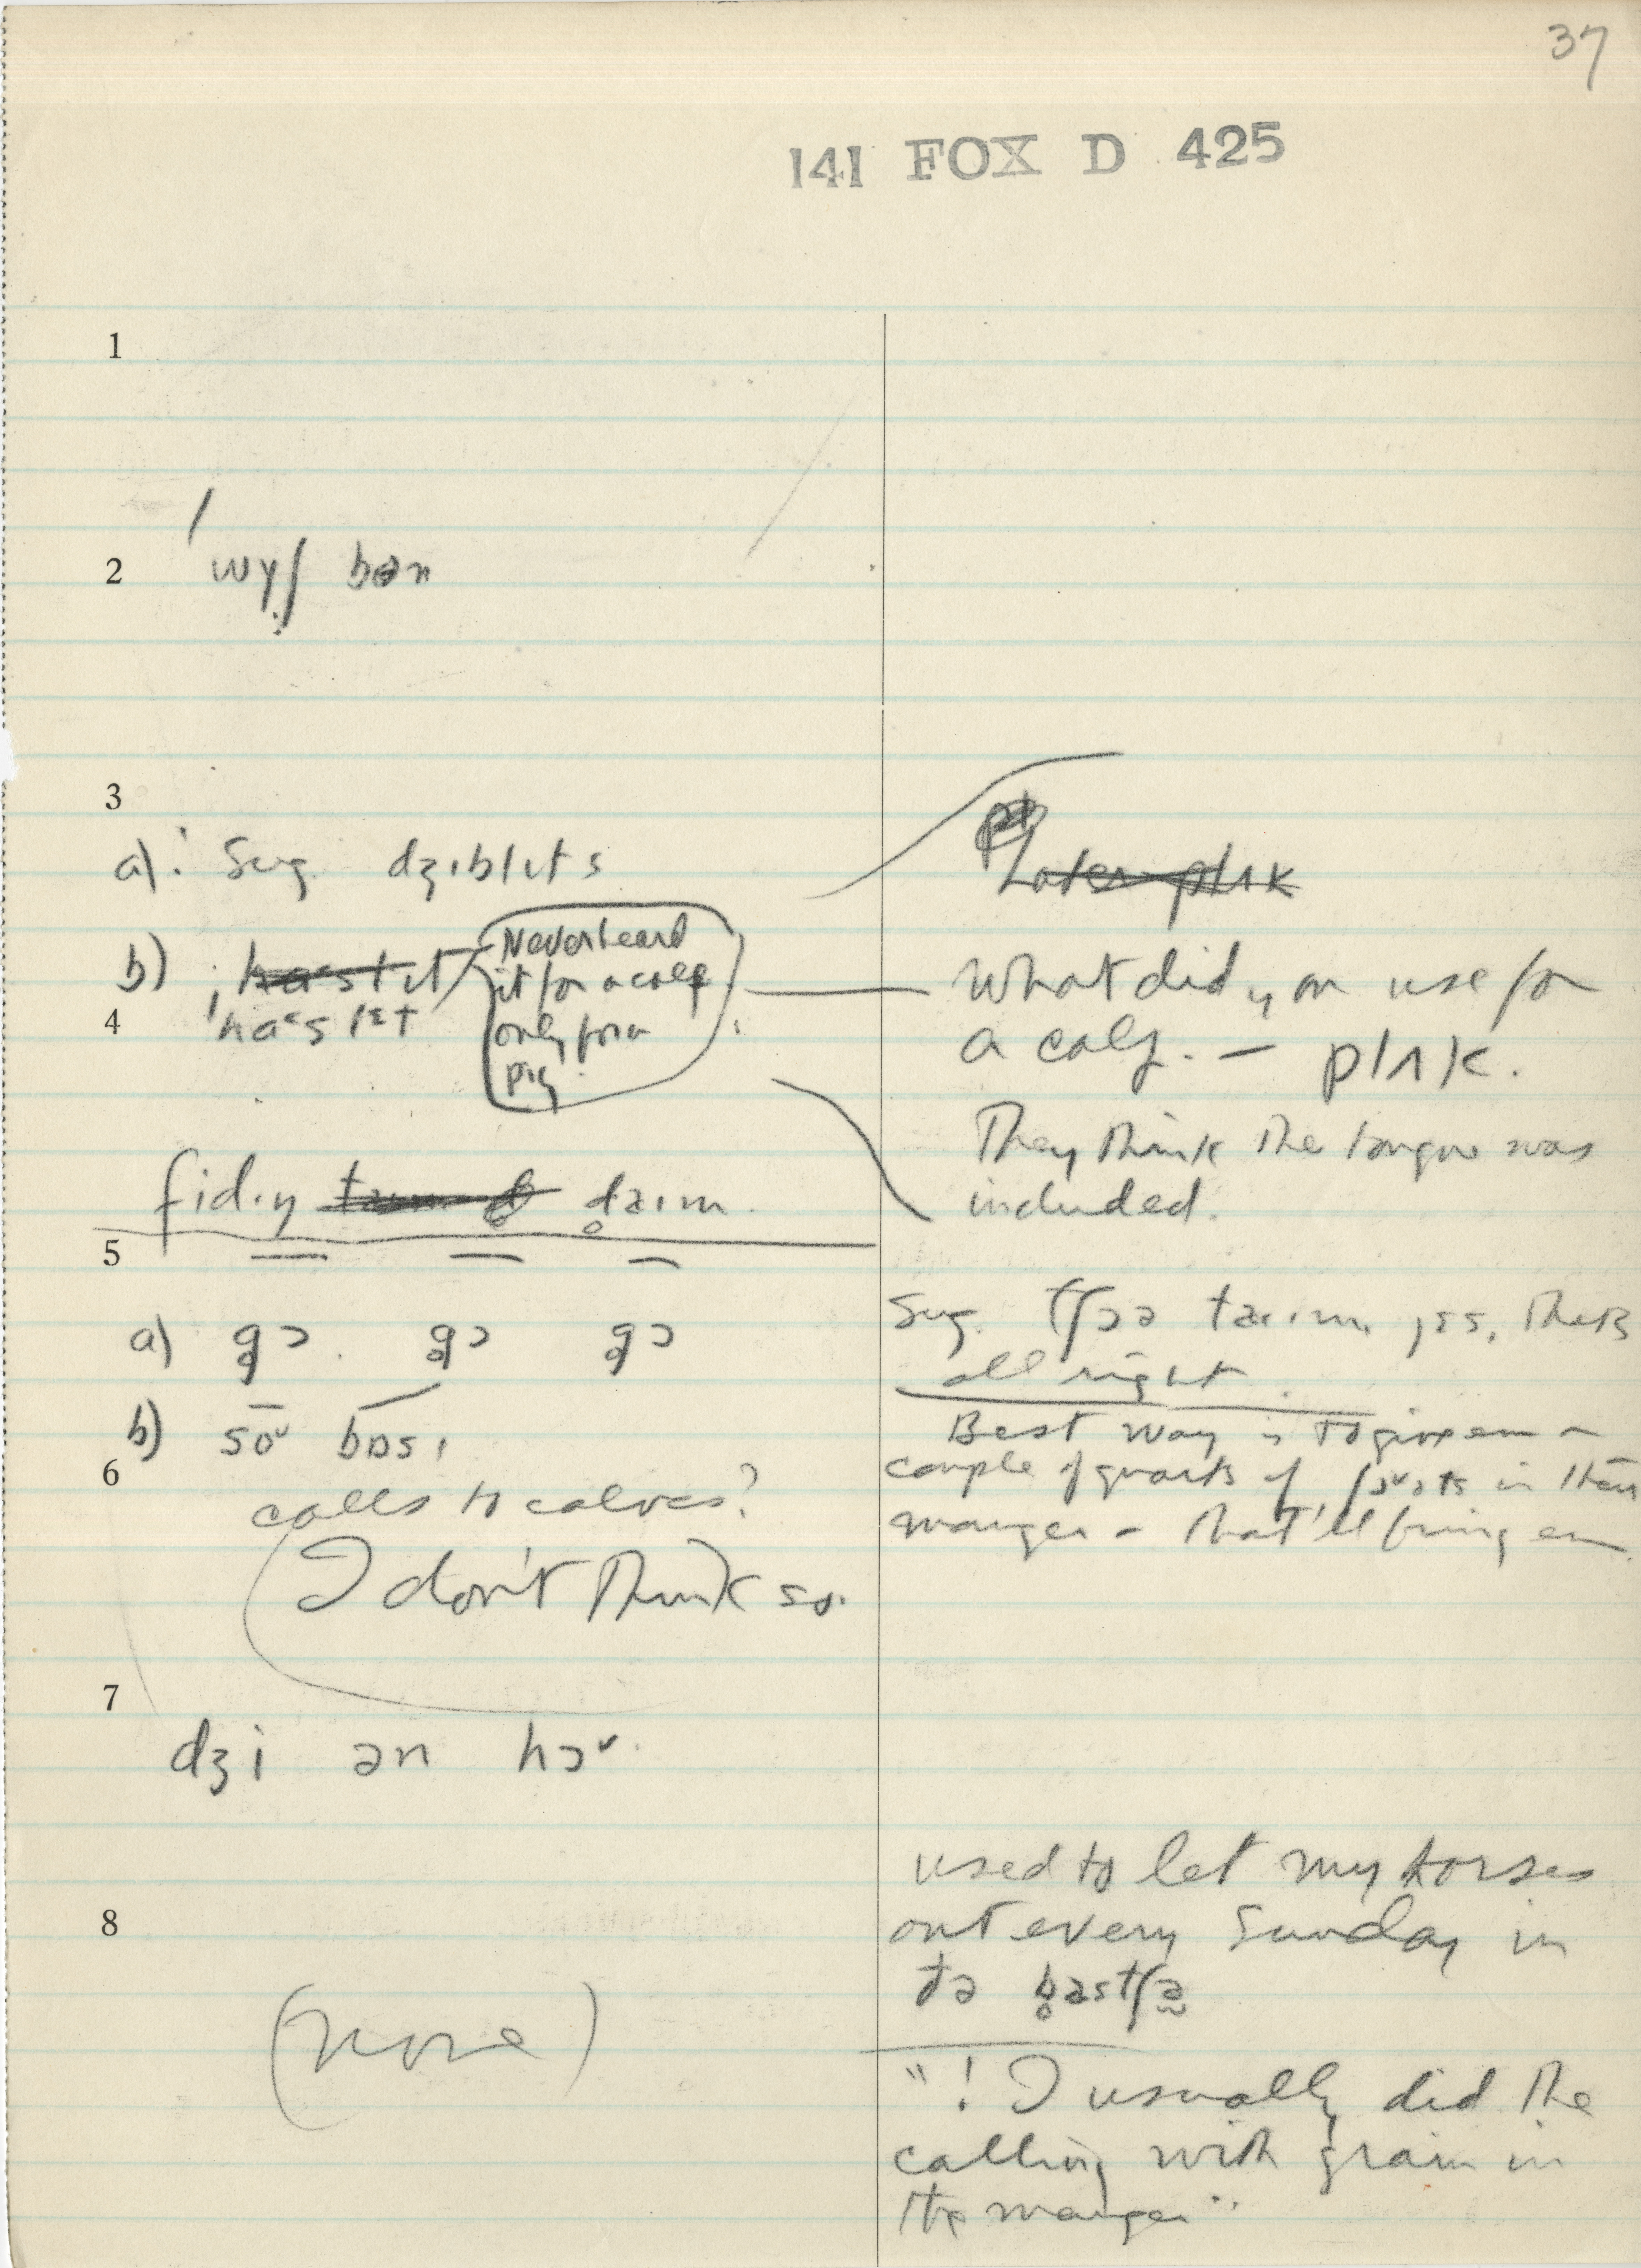 37
141 FOX D 425
1
2 wɣʃ bən
3
a) Sug. dʒɪblɪts
b) haslɪt
4 'haᵋslɪt
Never heard
it for a calf
only for a
pig
What did you use for
a calf. — plʌk.
They think the tongue was
included.
fid.ɪŋ taɪm
5
a) gɔ gɔ gɔ
Sug. tʃɔə taɪm, yes, that's
all right
b) so bɒsɪ
6 calls to calves?
I don't think so.
Best way is to give em a
couple of quarts of in their
manger - that'll bring em
7
dʒi ən hɔ
8
(none)
used to let my horses
out every Sunday in
ðə bastʃə
"! I usually did the
calling with grain in
the manger"